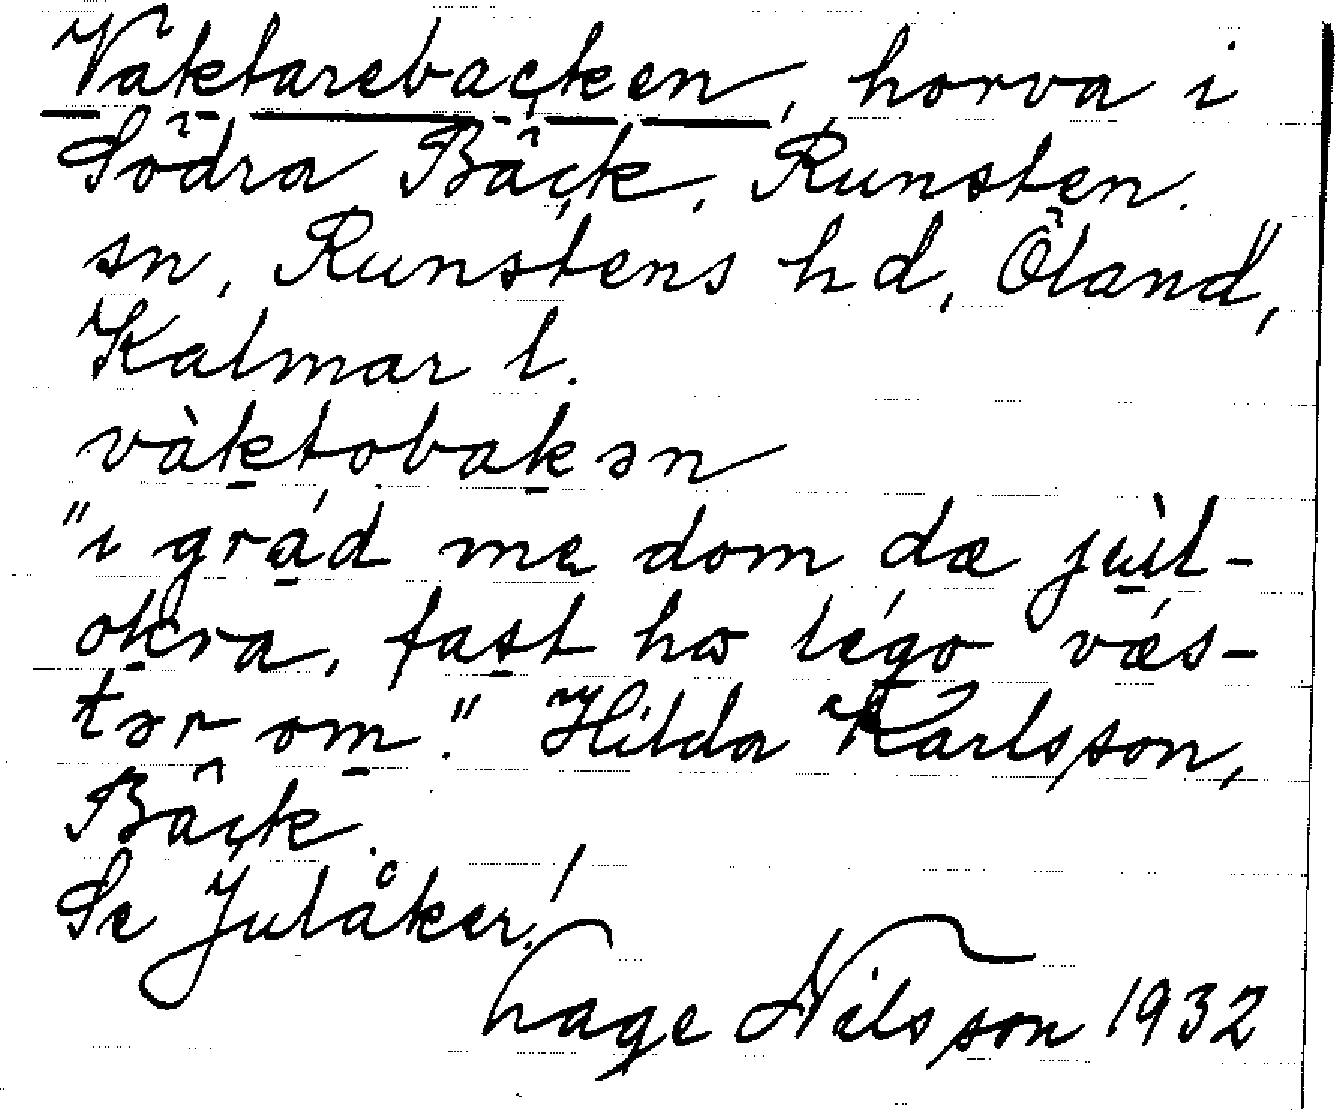 Vaktarebacken, horva i
Södra Bäck, Runsten.
sn, Runstens hd, Öland,
Kalmar l.
vàktobakən
"i gråd me dom dæ jùl-
okra, fast ha légo væs-
tər om." Hilda Karlsson,
Bäck.
Se Julåker!
Hage Nilsson 1932